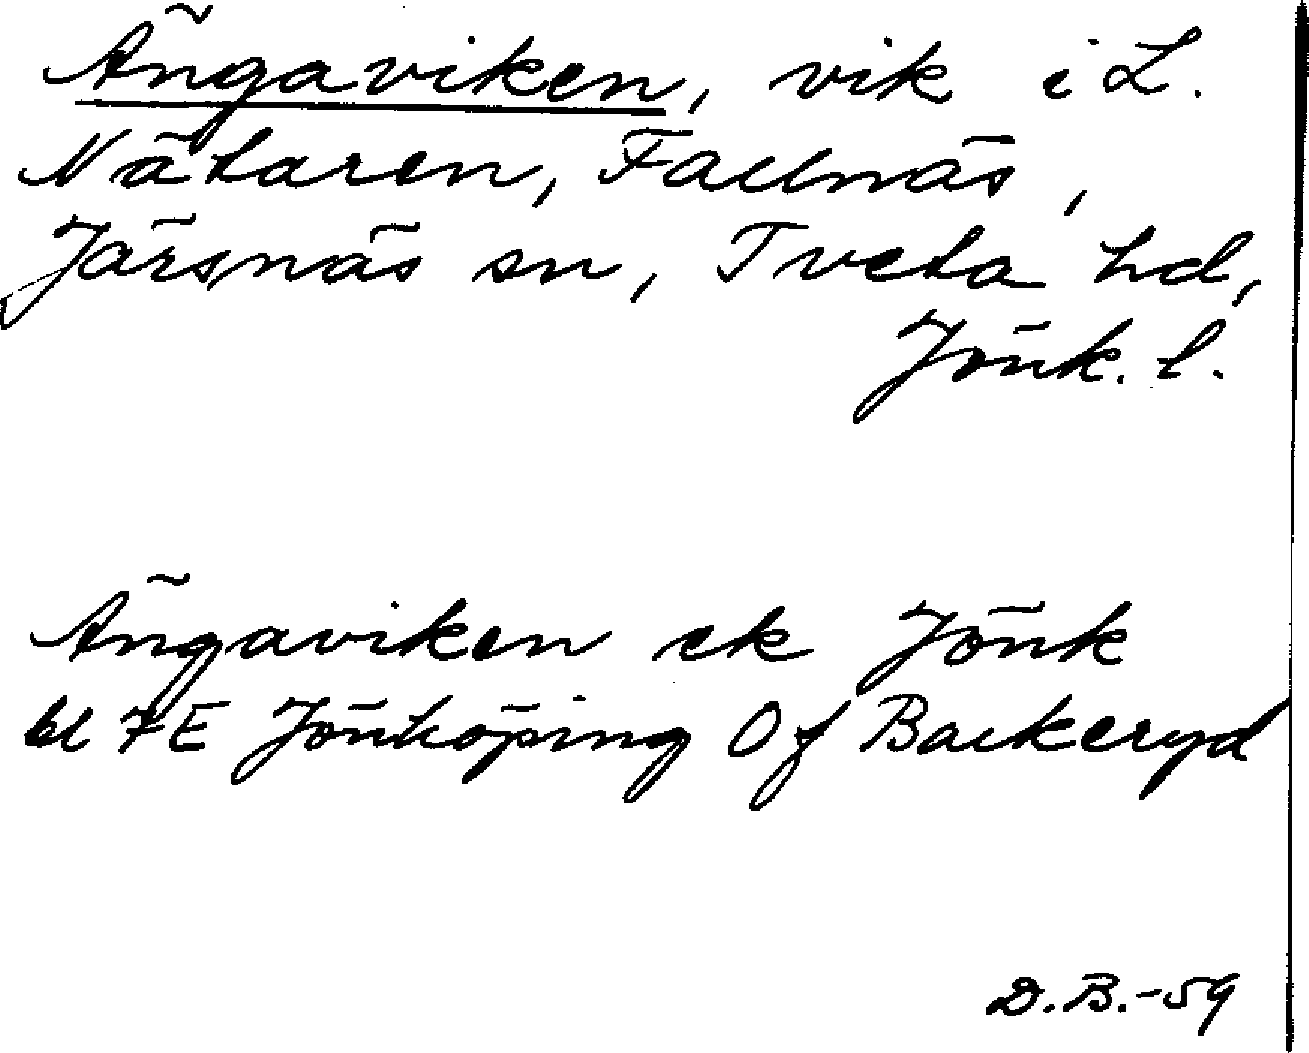 Ängaviken, vik i L.
Nätaren, Fallnäs,
Järsnäs sn, Tveta hd,
Jönk. l.
Ängaviken ek Jönk
bl 7E Jönköping Of Backeryd
D.B.-59